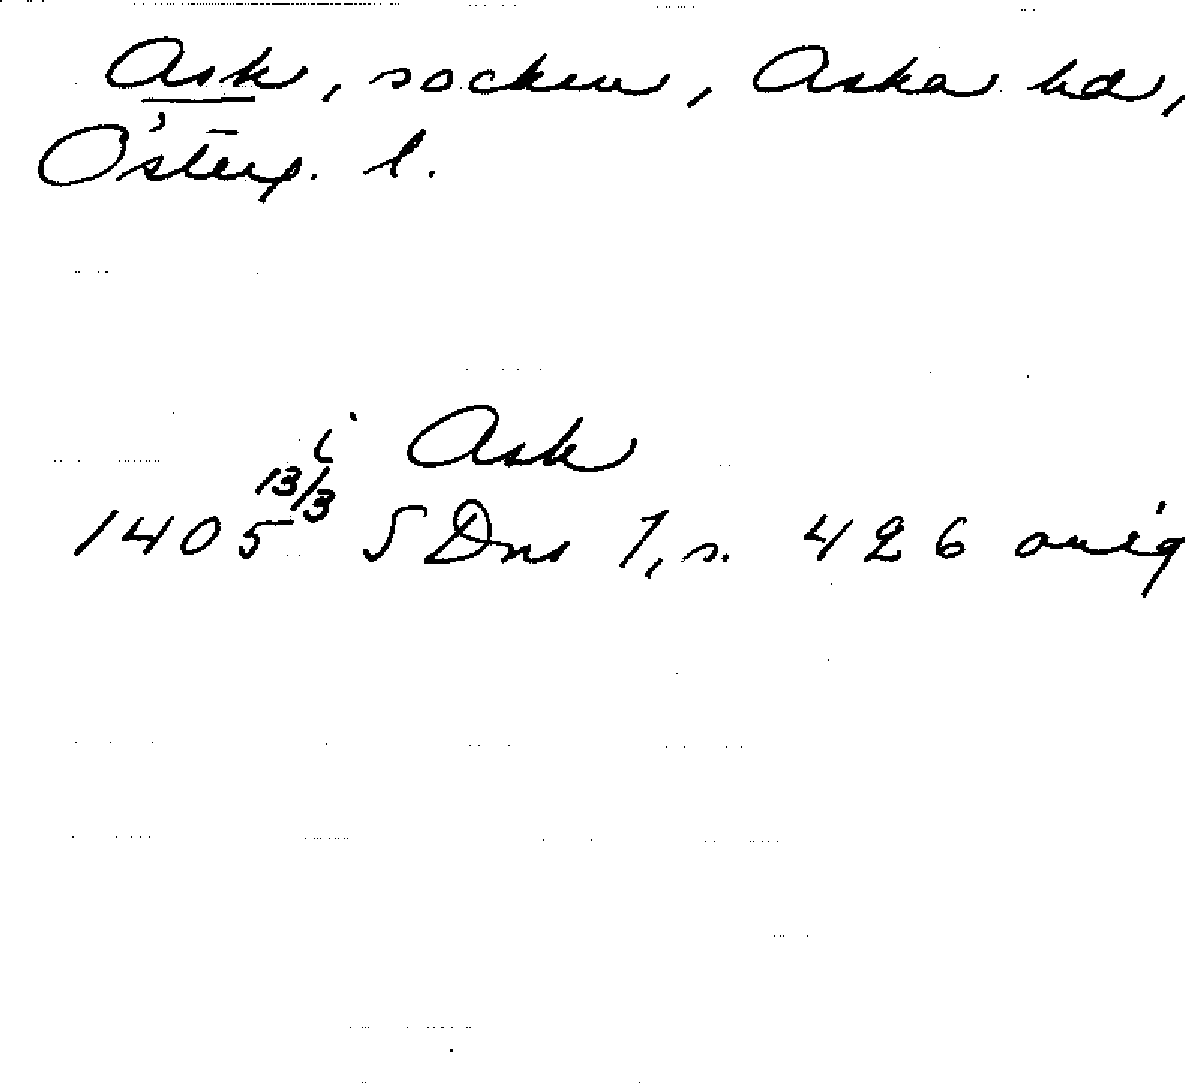 Ask, socken, Aska hd,
Österg. l.
i Ask
1405 13/3 SDns 1, s. 426 orig